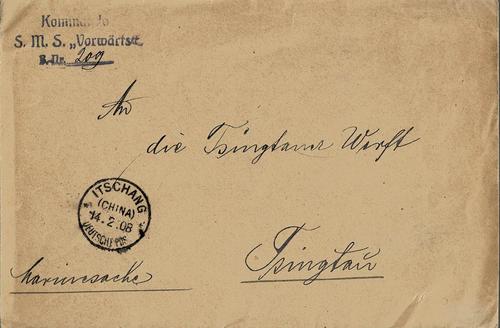 Kommando
S. M. S. „Vorwärts“
B. Nr. 209
An
die Tsingtauer Werft
ITSCHANG
(CHINA)
14.2.08
DEUTSCHE POST
Tsingtau
Marinesache